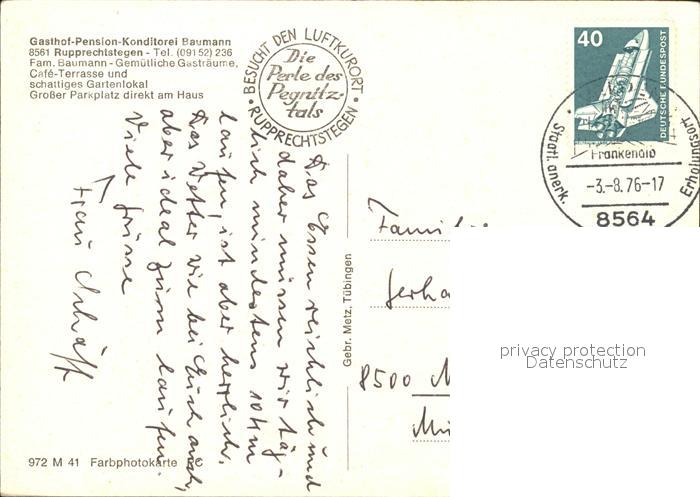 Gasthof-Pension-Konditorei Baumann
8561 Rupprechtstegen - Tel. (09152) 236
Fam. Baumann - Gemütliche Gasträume,
Café-Terrasse und
schattiges Gartenlokal
Großer Parkplatz direkt am Haus
• BESUCHT DEN LUFTKURORT •
RUPPRECHTSTEGEN
Die
Perle des
Pegnitz-
tals
40
DEUTSCHE BUNDESPOST
Staatl. anerk. Erholungsort
-3.-8.76-17
8564
Das Essen reichlich und
daher müssen wir täg-
lich mindestens 10 km
laufen, ist aber herrlich.
Das Wetter wie bei Euch auch,
aber ideal zum laufen.
Viele Grüsse
Frau Schäff
Gebr. Metz, Tübingen
Famil
Gerha
8500 N
972 M 41 Farbphotokarte
privacy protection
Datenschutz